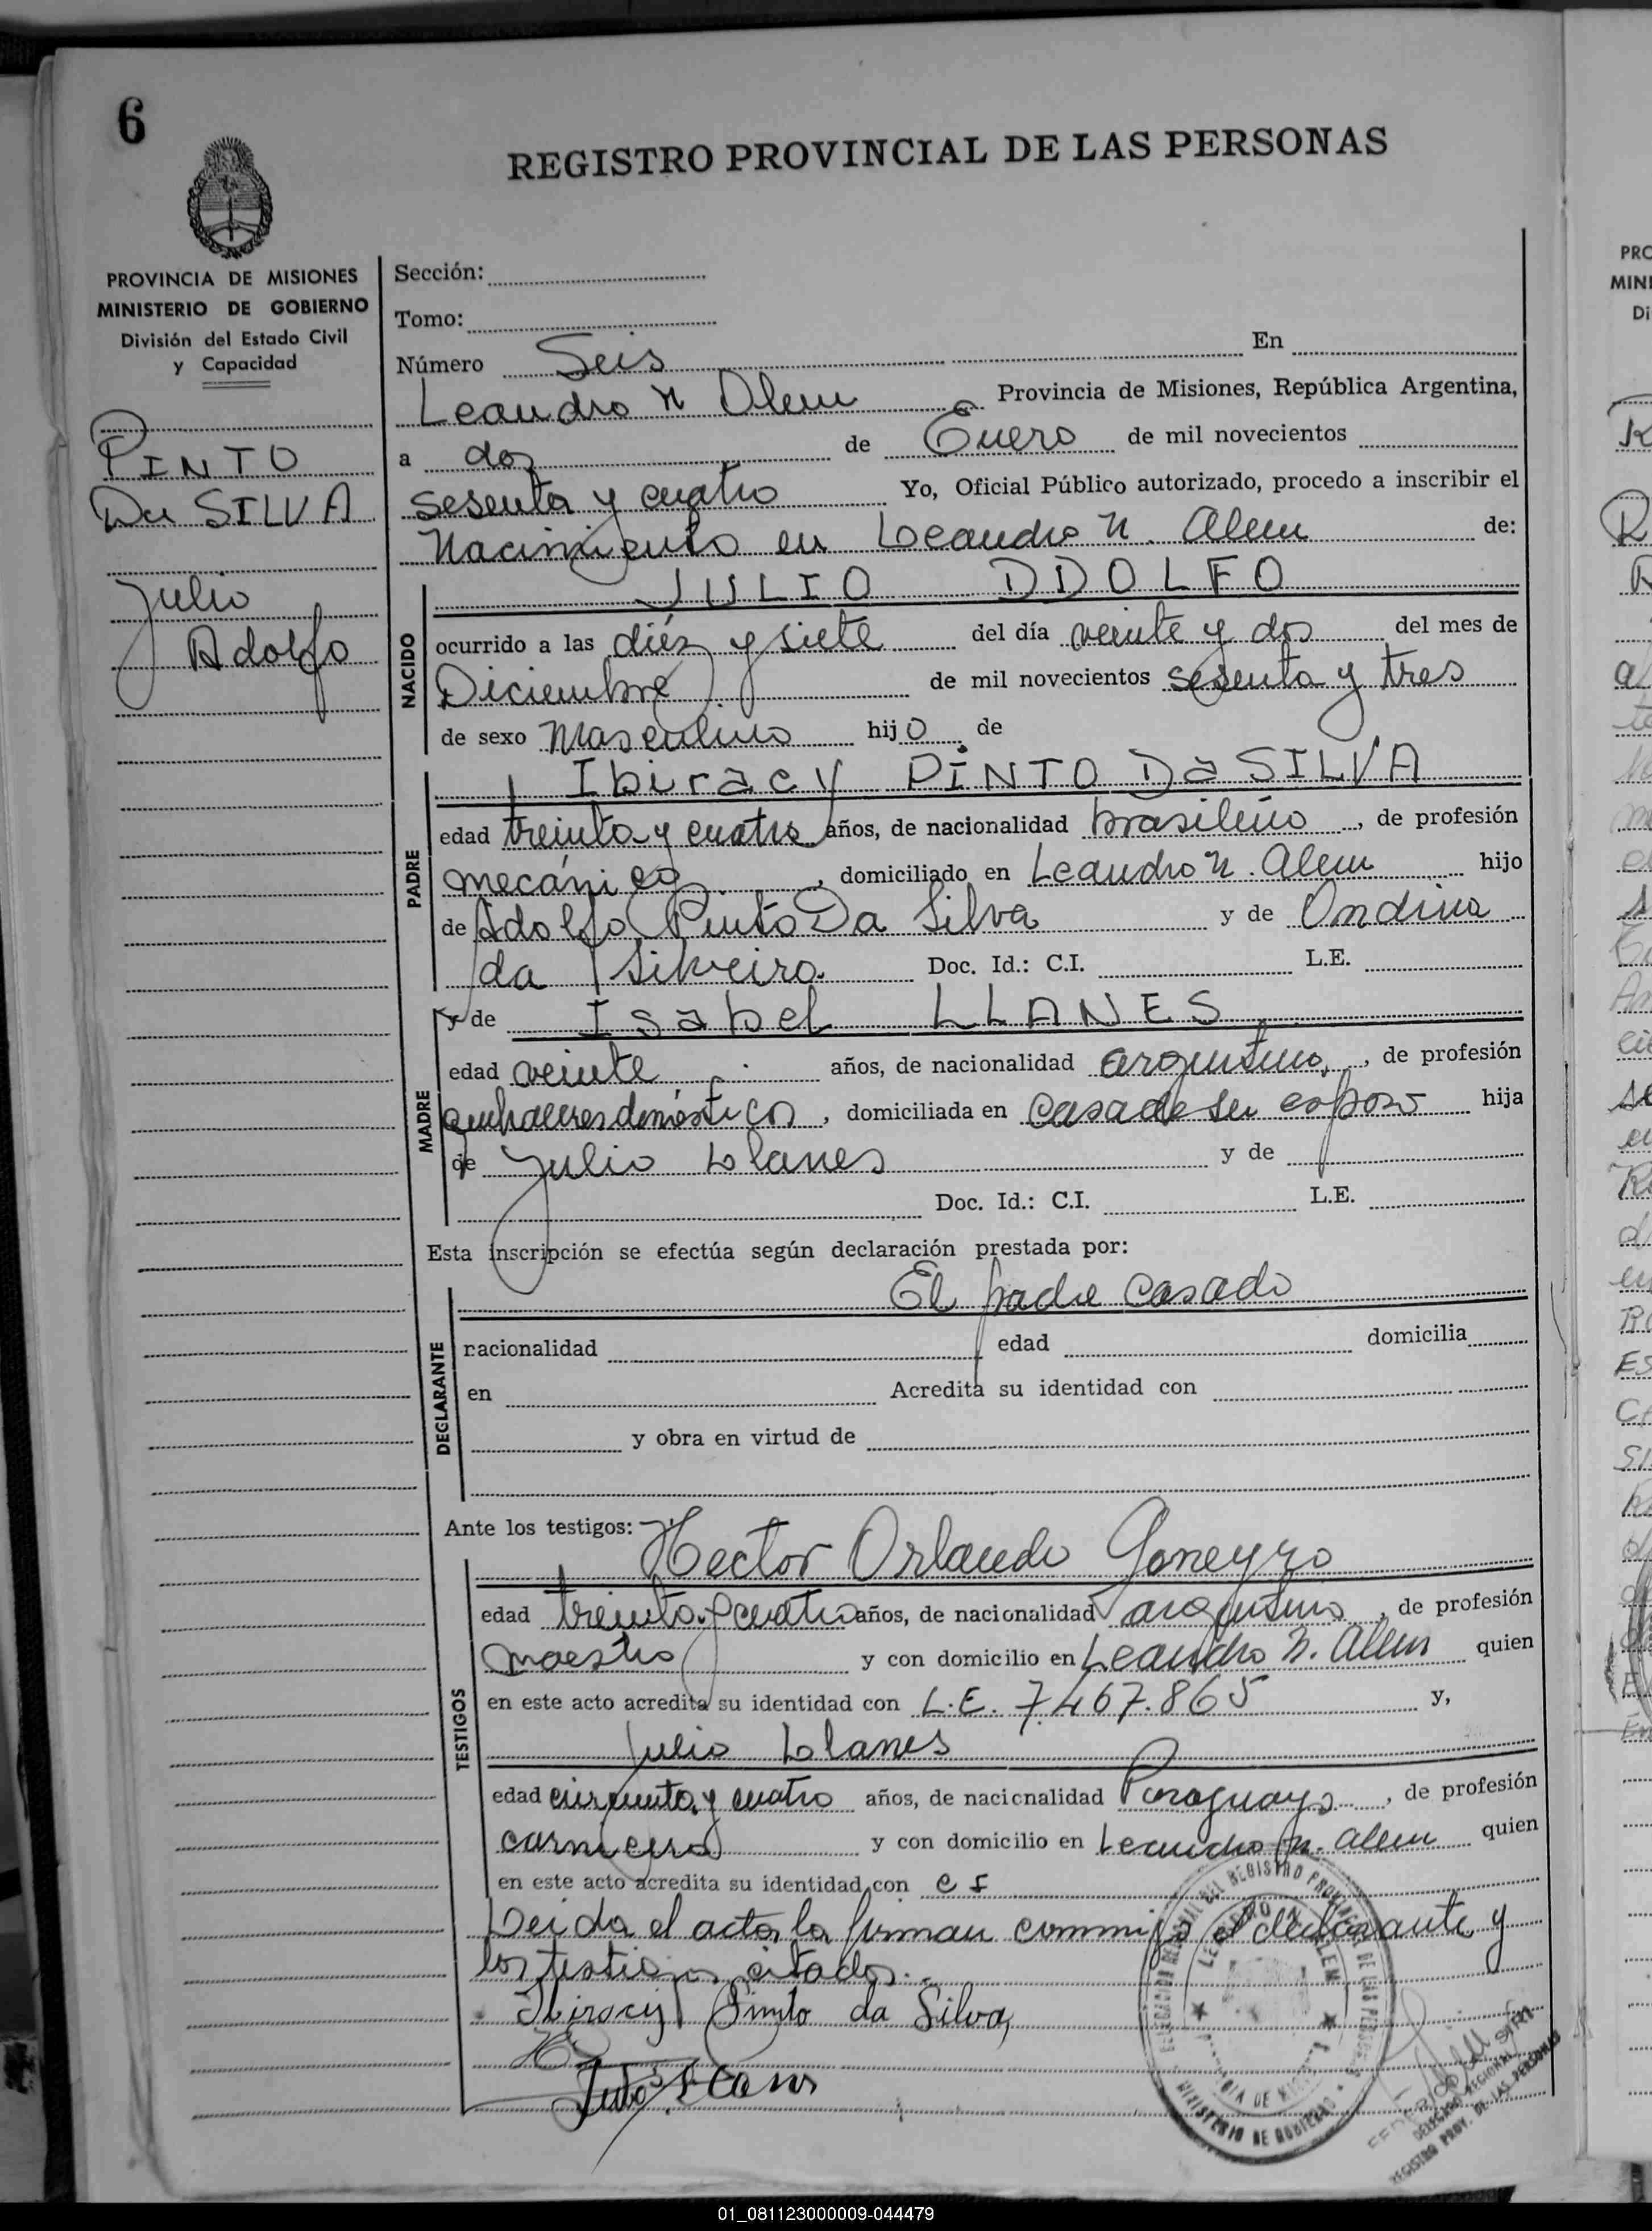 6
REGISTRO PROVINCIAL DE LAS PERSONAS
PROVINCIA DE MISIONES
MINISTERIO DE GOBIERNO
División del Estado Civil
y Capacidad
PINTO
Da SILVA
Julio
Adolfo
Sección:
Tomo:
Número Seis En
Leandro N Alem Provincia de Misiones, República Argentina,
a dos de Enero de mil novecientos
sesenta y cuatro Yo, Oficial Público autorizado, procedo a inscribir el
Nacimiento en Leandro N. Alem de:
JULIO ADOLFO
NACIDO
ocurrido a las diéz y siete del día veinte y dos del mes de
Diciembre de mil novecientos sesenta y tres
de sexo Masculino hijo de
Ibiracy PINTO Da SILVA
PADRE
edad treinta y cuatro años, de nacionalidad brasileño, de profesión
mecánico, domiciliado en Leandro N. Alem hijo
de Adolfo Pinto Da Silva y de Ondina
da Silveira Doc. Id.: C.I. L.E.
y de Isabel LLANES
MADRE
edad veinte años, de nacionalidad argentina, de profesión
quehaceres domésticos, domiciliada en casa de su esposo hija
de Julio Llanes y de
Doc. Id.: C.I. L.E.
Esta inscripción se efectúa según declaración prestada por:
El padre casado
DECLARANTE
racionalidad edad domicilia
en Acredita su identidad con
y obra en virtud de
Ante los testigos: Hector Orlando Goneyro
TESTIGOS
edad treinta y cuatro años, de nacionalidad argentino, de profesión
maestro y con domicilio en Leandro N. Alem quien
en este acto acredita su identidad con L.E. 7.467.865 y,
Julio Llanes
edad cincuenta y cuatro años, de nacionalidad Paraguayo, de profesión
carnicero y con domicilio en Leandro N. Alem quien
en este acto acredita su identidad con
Leida el acta la firman conmigo el declarante y
los testigos citados.
Ibiracy Pinto da Silva
Julio Llanes
DEL REGISTRO PROVINCIAL DE LAS PERSONAS
LEANDRO N. ALEM
MINISTERIO DE GOBIERNO
DELEGADO REGIONAL
REGISTRO PROV. DE LAS PERSONAS
01_081123000009-044479